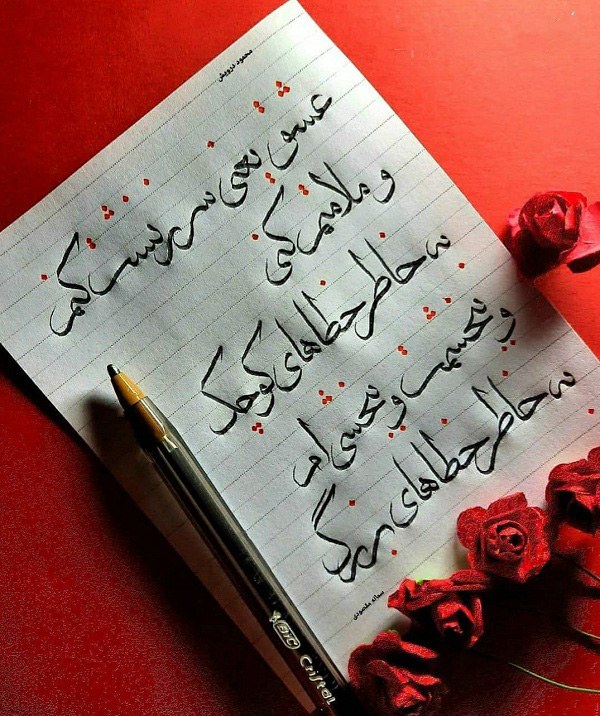 محمود درویش
عشق یعنی سرزنشت کنم
و ملامتم کنی
به خاطر خطاهای کوچک
و ببخشمت و ببخشی ام
به خاطر خطاهای بزرگ
سمانه محمودی
BIC Cristal